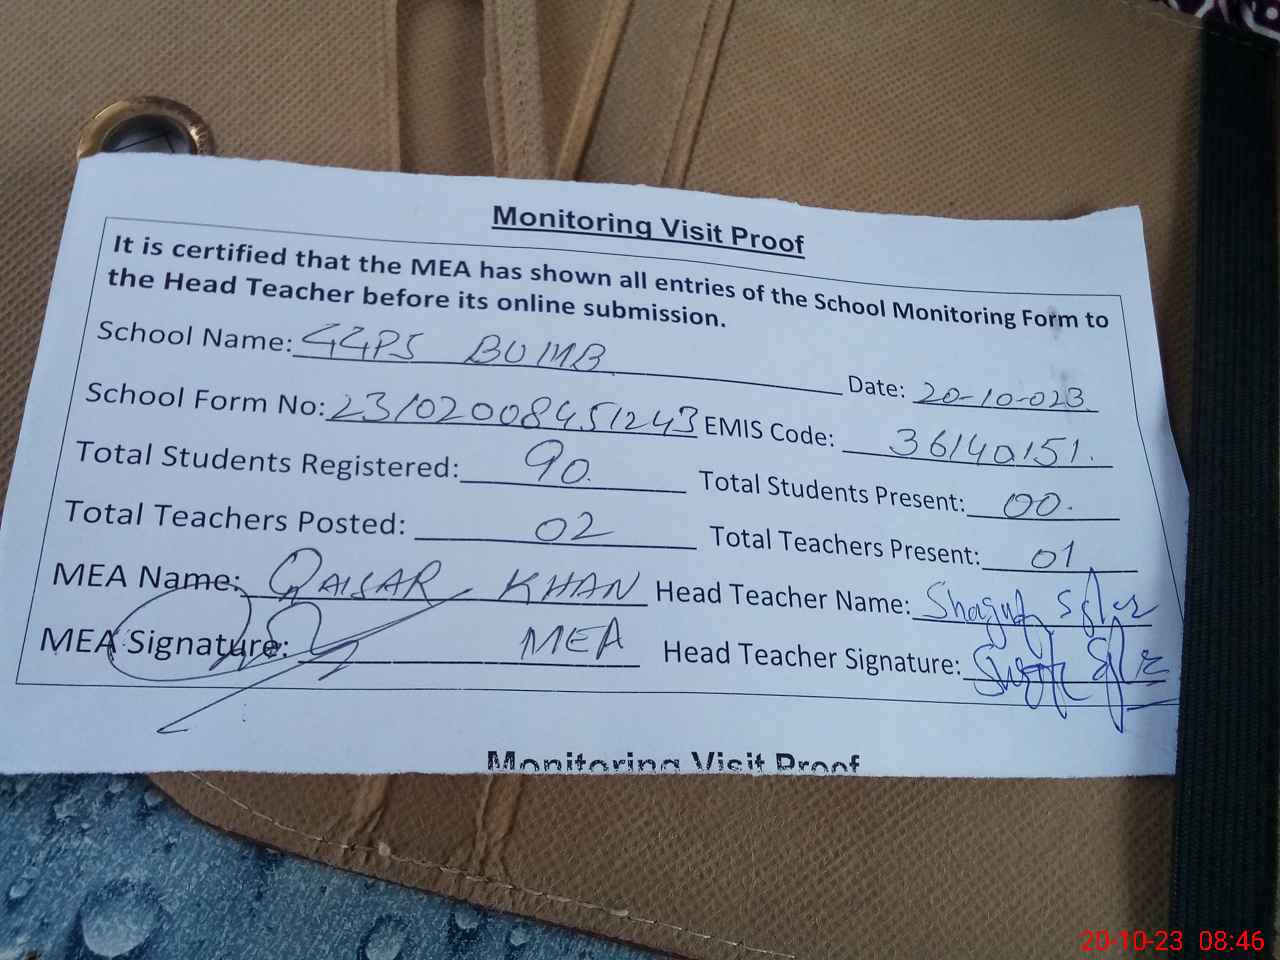 Monitoring Visit Proof
It is certified that the MEA has shown all entries of the School Monitoring Form to
the Head Teacher before its online submission.
School Name: GGPS BUMB Date: 20-10-023
School Form No: 23102008451243 EMIS Code: 36140151.
Total Students Registered: 90. Total Students Present: 00.
Total Teachers Posted: 02 Total Teachers Present: 01
MEA Name: QAISAR KHAN Head Teacher Name:
MEA Signature: MEA Head Teacher Signature:
Monitoring Visit Proof
20-10-23 08:46